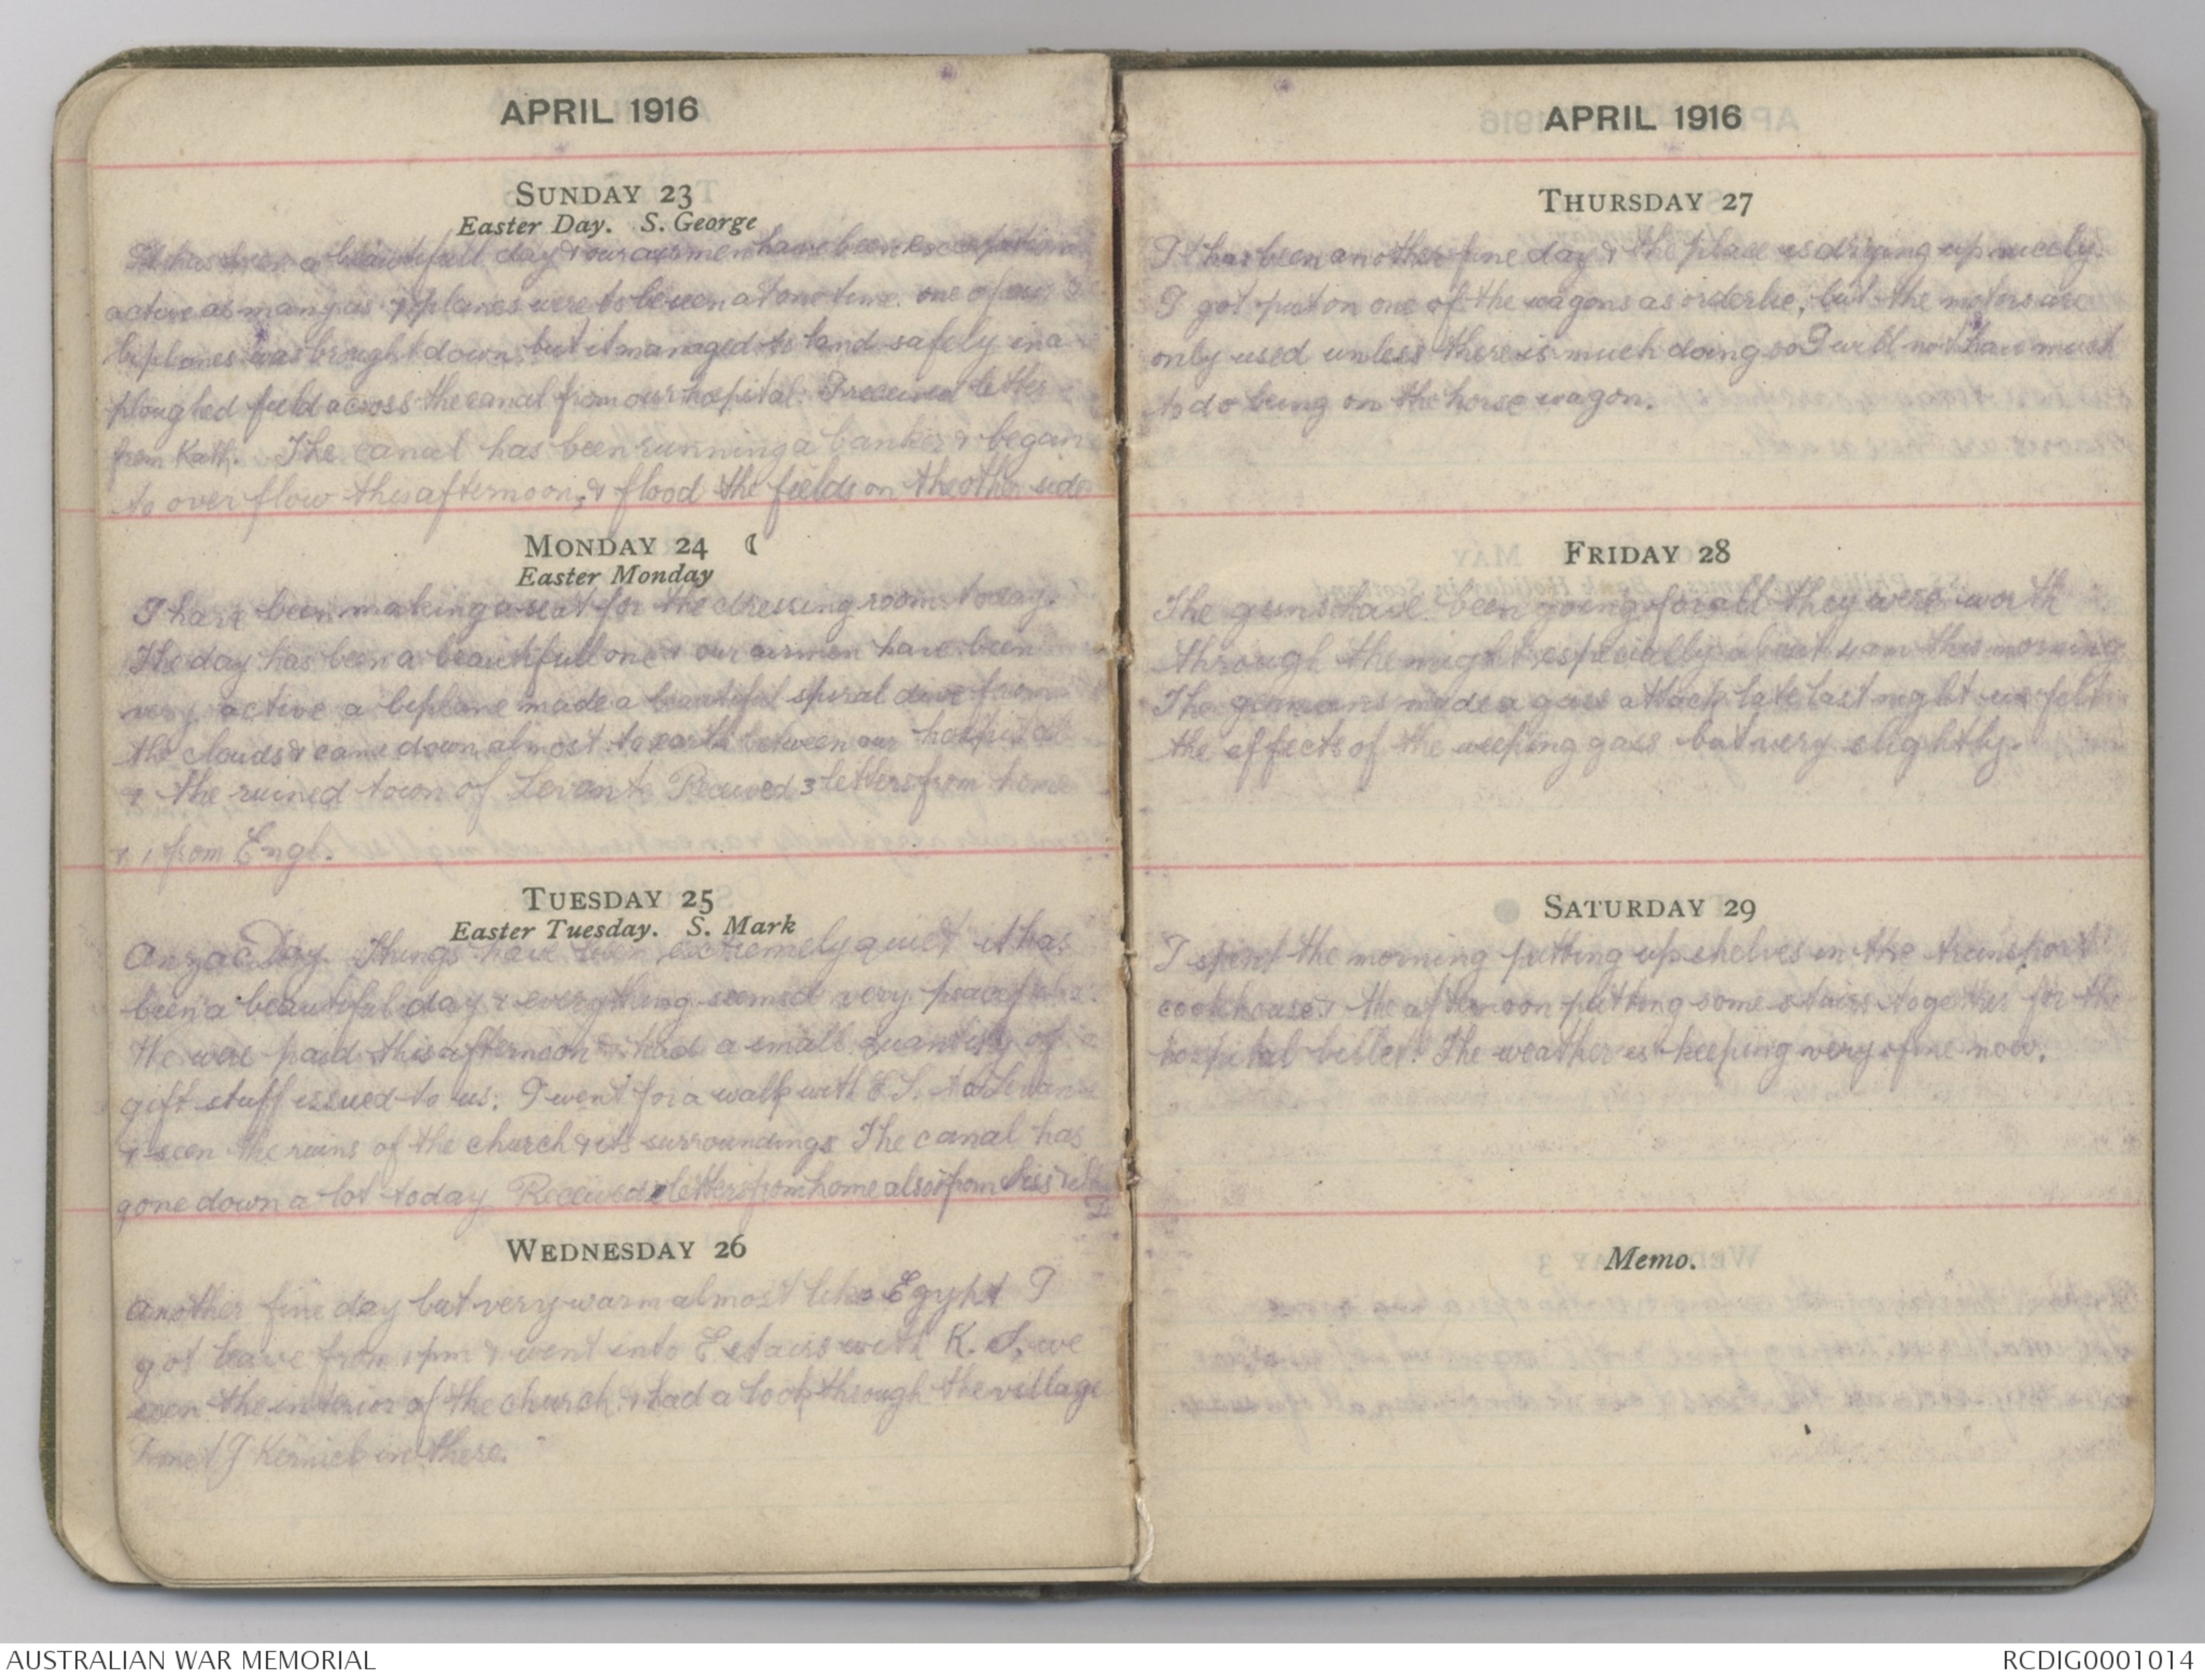 APRIL 1916
SUNDAY 23
Easter Day. S. George
It has been a beautifull day & our airmen have been exceptional
active as many as 7 planes were to be seen at one time. one of our
biplanes was brought down, but it managed to land safely in a
ploughed field across the canal from our hospital. I received letter
from Kath. The canal has been running a banker & began
to over flow this afternoon, & flood the fields on the other side
MONDAY 24
Easter Monday
I have been making a seat for the dressing room today.
The day has been a beautifull one & our airmen have been
very active a biplane made a beautiful spiral dive from
the clouds & came down almost to earth between our hospital
& the ruined town of Levante Received 3 letters from home
& 1 from Engl.
TUESDAY 25
Easter Tuesday. S. Mark
Anzac Day. Things have been extremely quiet it has
been a beautiful day & everything seemed very peacefull.
We were paid this afternoon & had a small quantity of
gift stuff issued to us. I went for a walk with E.S. to
& seen the ruins of the church & its surroundings The canal has
gone down a lot today Received letters from home also from
WEDNESDAY 26
Another fine day but very warm almost like Egypt I
got leave from 1 pm & went into Estairs with K. S. we
seen the interior of the church & had a look through the village
I met J in there.
APRIL 1916
THURSDAY 27
It has been another fine day & the place is drying up nicely.
I got put on one of the wagons as orderlie, but the motors are
only used unless there is much doing so I will not have much
to do being on the horse wagon.
FRIDAY 28
The guns have been going for all they were worth
through the night especially about 4 am this morning
The germans made a gass attack late last night we felt
the effects of the weeping gass but very slightly.
SATURDAY 29
I spent the morning putting up shelves in the transport
cookhouse & the afternoon putting some stairs together for the
hospital billet. The weather is keeping very fine now.
Memo.
AUSTRALIAN WAR MEMORIAL
RCDIG0001014